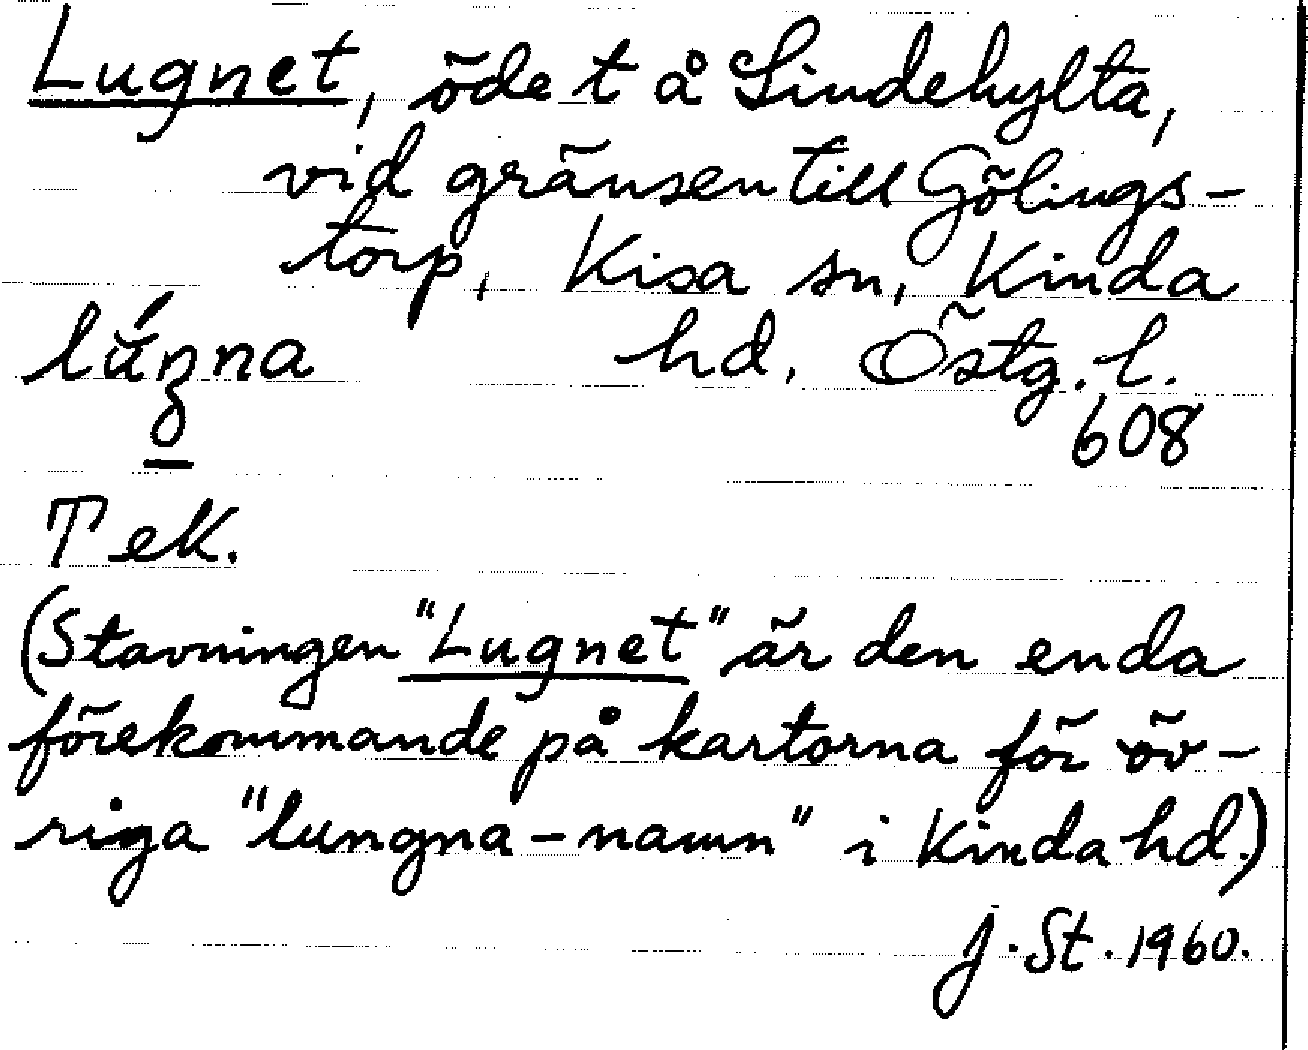 Lugnet, öde t å Lindehylta,
vid gränsen till Gölings-
torp, Kisa sn, Kinda
hd. Östg. l.
608
Tek.
(Stavningen "Lugnet" är den enda
förekommande på kartorna för öv-
riga "lungna-namn" i Kinda hd.)
J. St. 1960.